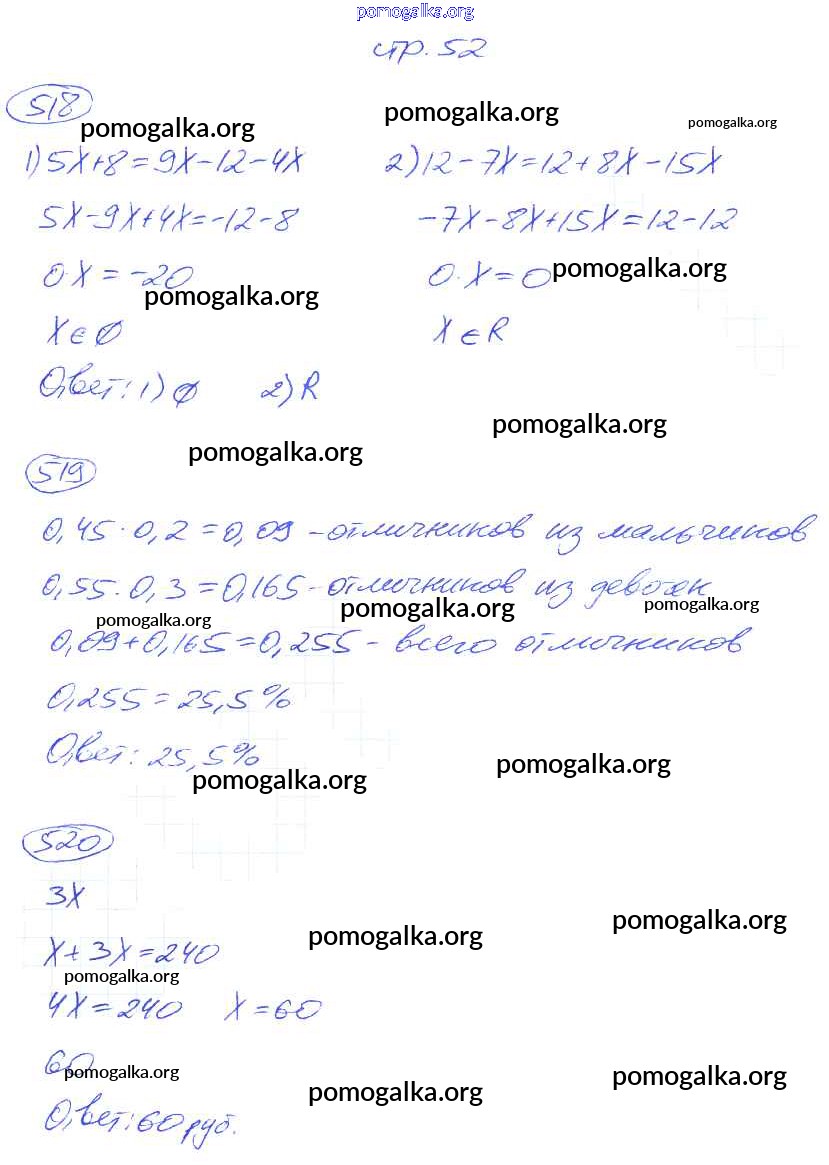 pomogalka.org
стр. 52
518
pomogalka.org pomogalka.org pomogalka.org
1) 5x+8=9x-12-4x 2) 12-7x=12+8x-15x
5x-9x+4x=-12-8 -7x-8x+15x=12-12
0·x=-20 0·x=0 pomogalka.org
pomogalka.org
x∈∅ x∈R
Ответ: 1) ∅ 2) R
pomogalka.org
pomogalka.org
519
0,45·0,2=0,09 - отличников из мальчиков
0,55·0,3=0,165 - отличников из девочек
pomogalka.org pomogalka.org pomogalka.org
0,09+0,165=0,255 - всего отличников
0,255=25,5%
Ответ: 25,5%
pomogalka.org pomogalka.org
520
3x
pomogalka.org pomogalka.org
x+3x=240
pomogalka.org
4x=240 x=60
60
pomogalka.org pomogalka.org pomogalka.org
Ответ: 60 руб.